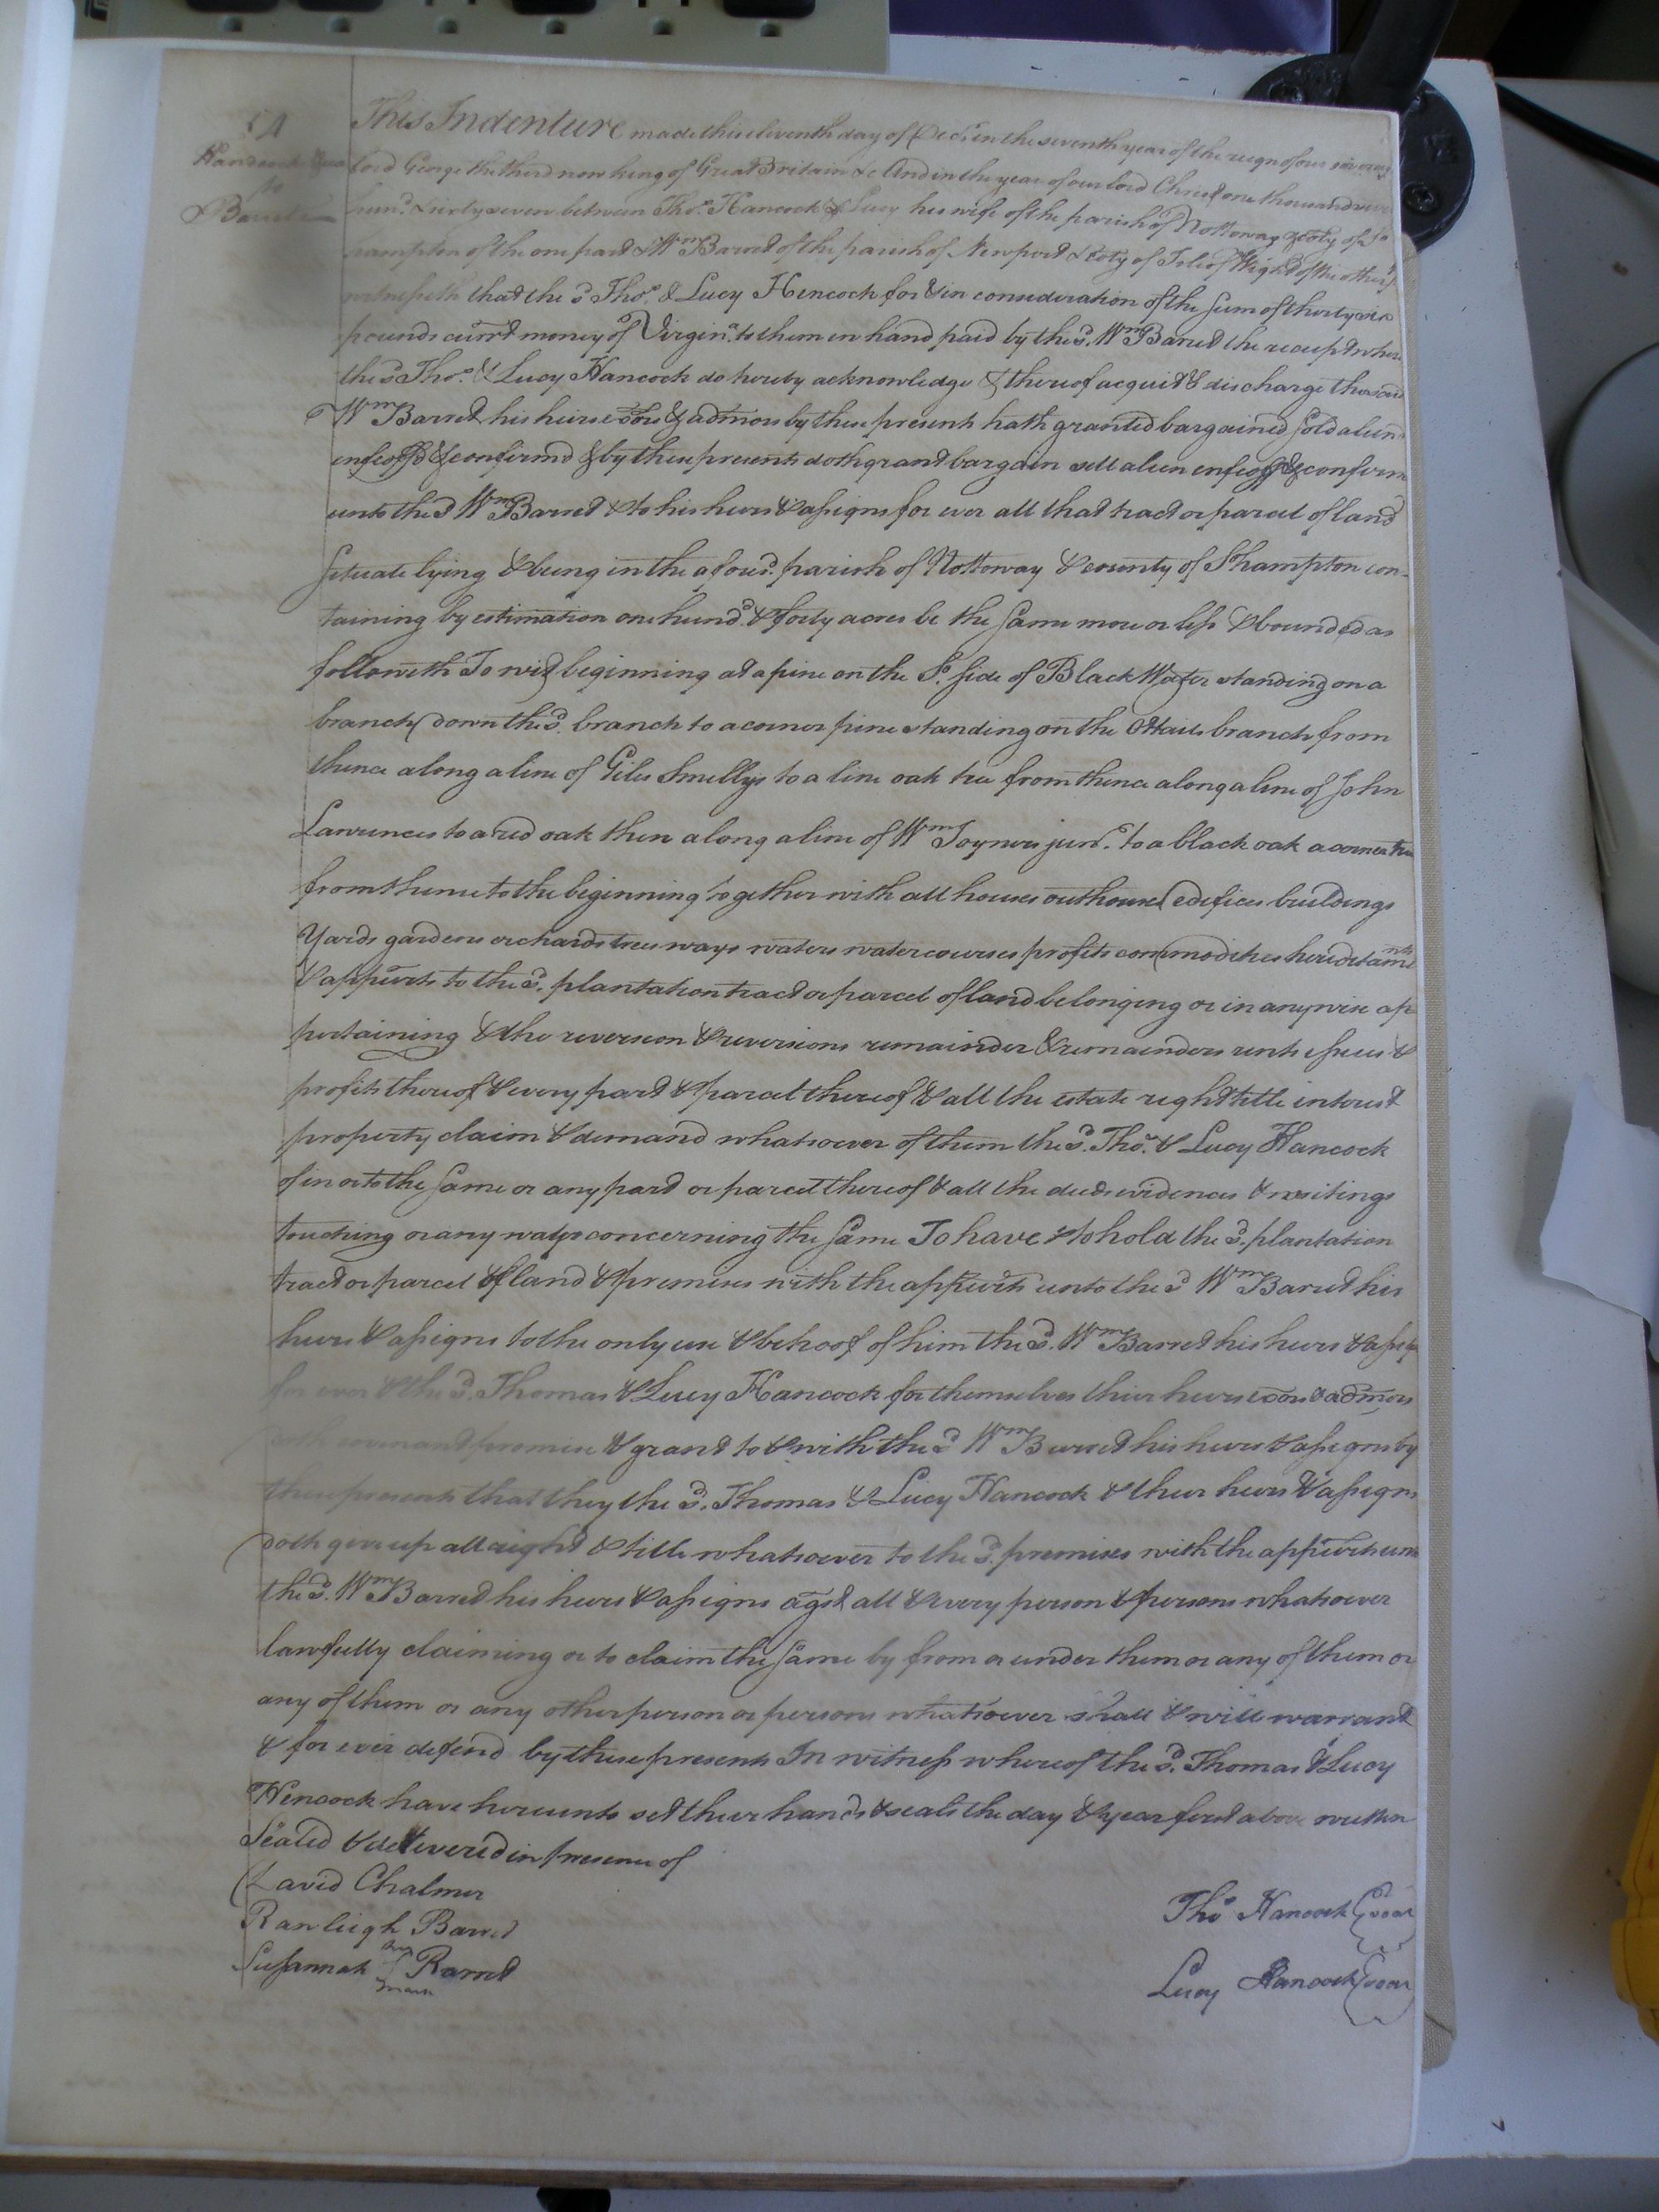 54
Hancock &ux
to
Barret
This Indenture made this eleventh day of Decr. in the seventh year of the reign of our sovereig
lord George the third now king of Great Britain &c And in the year of our lord Christ one thousand seven
hund. & sixty seven between Thos. Hancock & Lucy his wife of the parish of Nottoway & coty of So
hampton of the one part & Wm Barret of the parish of Newport & Coty of Isle of Wight of the other
witnesseth that the sd. Thos. & Lucy Hencock for & in consideration of the sum of thirty
pounds currt money of Virgina. to them in hand paid by the sd. Wm Barret the receipt where
the sd Thos. & Lucy Hancock do hereby acknowledge & thereof acquit & discharge the said
Wm Barret his heirs exors & admors by these presents hath granted bargained sold alien
enfeoffd & confirmd & by these presents doth grant bargain sell alien enfeoff & confirm
unto the sd Wm Barret & to his heirs & assigns for ever all that tract or parcel of land
situate lying & being in the aforesd. parish of Nottoway & county of Shampton con-
taining by estimation one hundd. & forty acres be the same more or less & bounded as
followeth To wit beginning at a pine on the So. side of Black Water standing on a
branch down the sd. branch to a corner pine standing on the branch from
thence along a line of Giles Smellys to a line oak tree from thence along a line of John
Lawrences to a red oak then along a line of Wm Joyners junr. to a black oak a corner tree
from thence to the beginning together with all houses outhouses edifices buildings
Yards gardens orchards trees ways waters watercourses profits commodities hereditamts
& appurts to the sd. plantation tract or parcel of land belonging or in anywise ap
pertaining & the reversion & reversions remainder & remainders rents issues &
profits thereof & every part & parcel thereof & all the estate right title interest
property claim & demand whatsoever of them the sd. Thos. & Lucy Hancock
of in or to the same or any part or parcel thereof & all the deeds evidences & writings
touching or any ways concerning the same To have & to hold the sd. plantation
tract or parcel of land & premises with the appurts unto the sd Wm Barret his
heirs & assigns to the only use & behoof of him the sd. Wm Barret his heirs & assigns
for ever & the sd. Thomas & Lucy Hancock for themselves thier heirs exors & admors
doth covenant promise & grant to & with the sd Wm Barret his heirs & assigns by
these presents that they the sd. Thomas & Lucy Hancock & their heirs & assigns
doth give up all right & title whatsoever to the sd. premises with the appurts unto
the sd. Wm Barret his heirs & assigns agst all & every person & persons whatsoever
lawfully claiming or to claim the same by from or under them or any of them or
any of them or any other person or persons whatsoever shall & will warrant
& for ever defend by these presents In witness whereof the sd. Thomas & Lucy
Hencock have hereunto set their hands & seals the day & year first above written
Sealed & delivered in presence of
David Chalmer
Rawleigh Barret
Susannah her mark Barret
Thos Hancock Seal
Lucy Hancock Seal